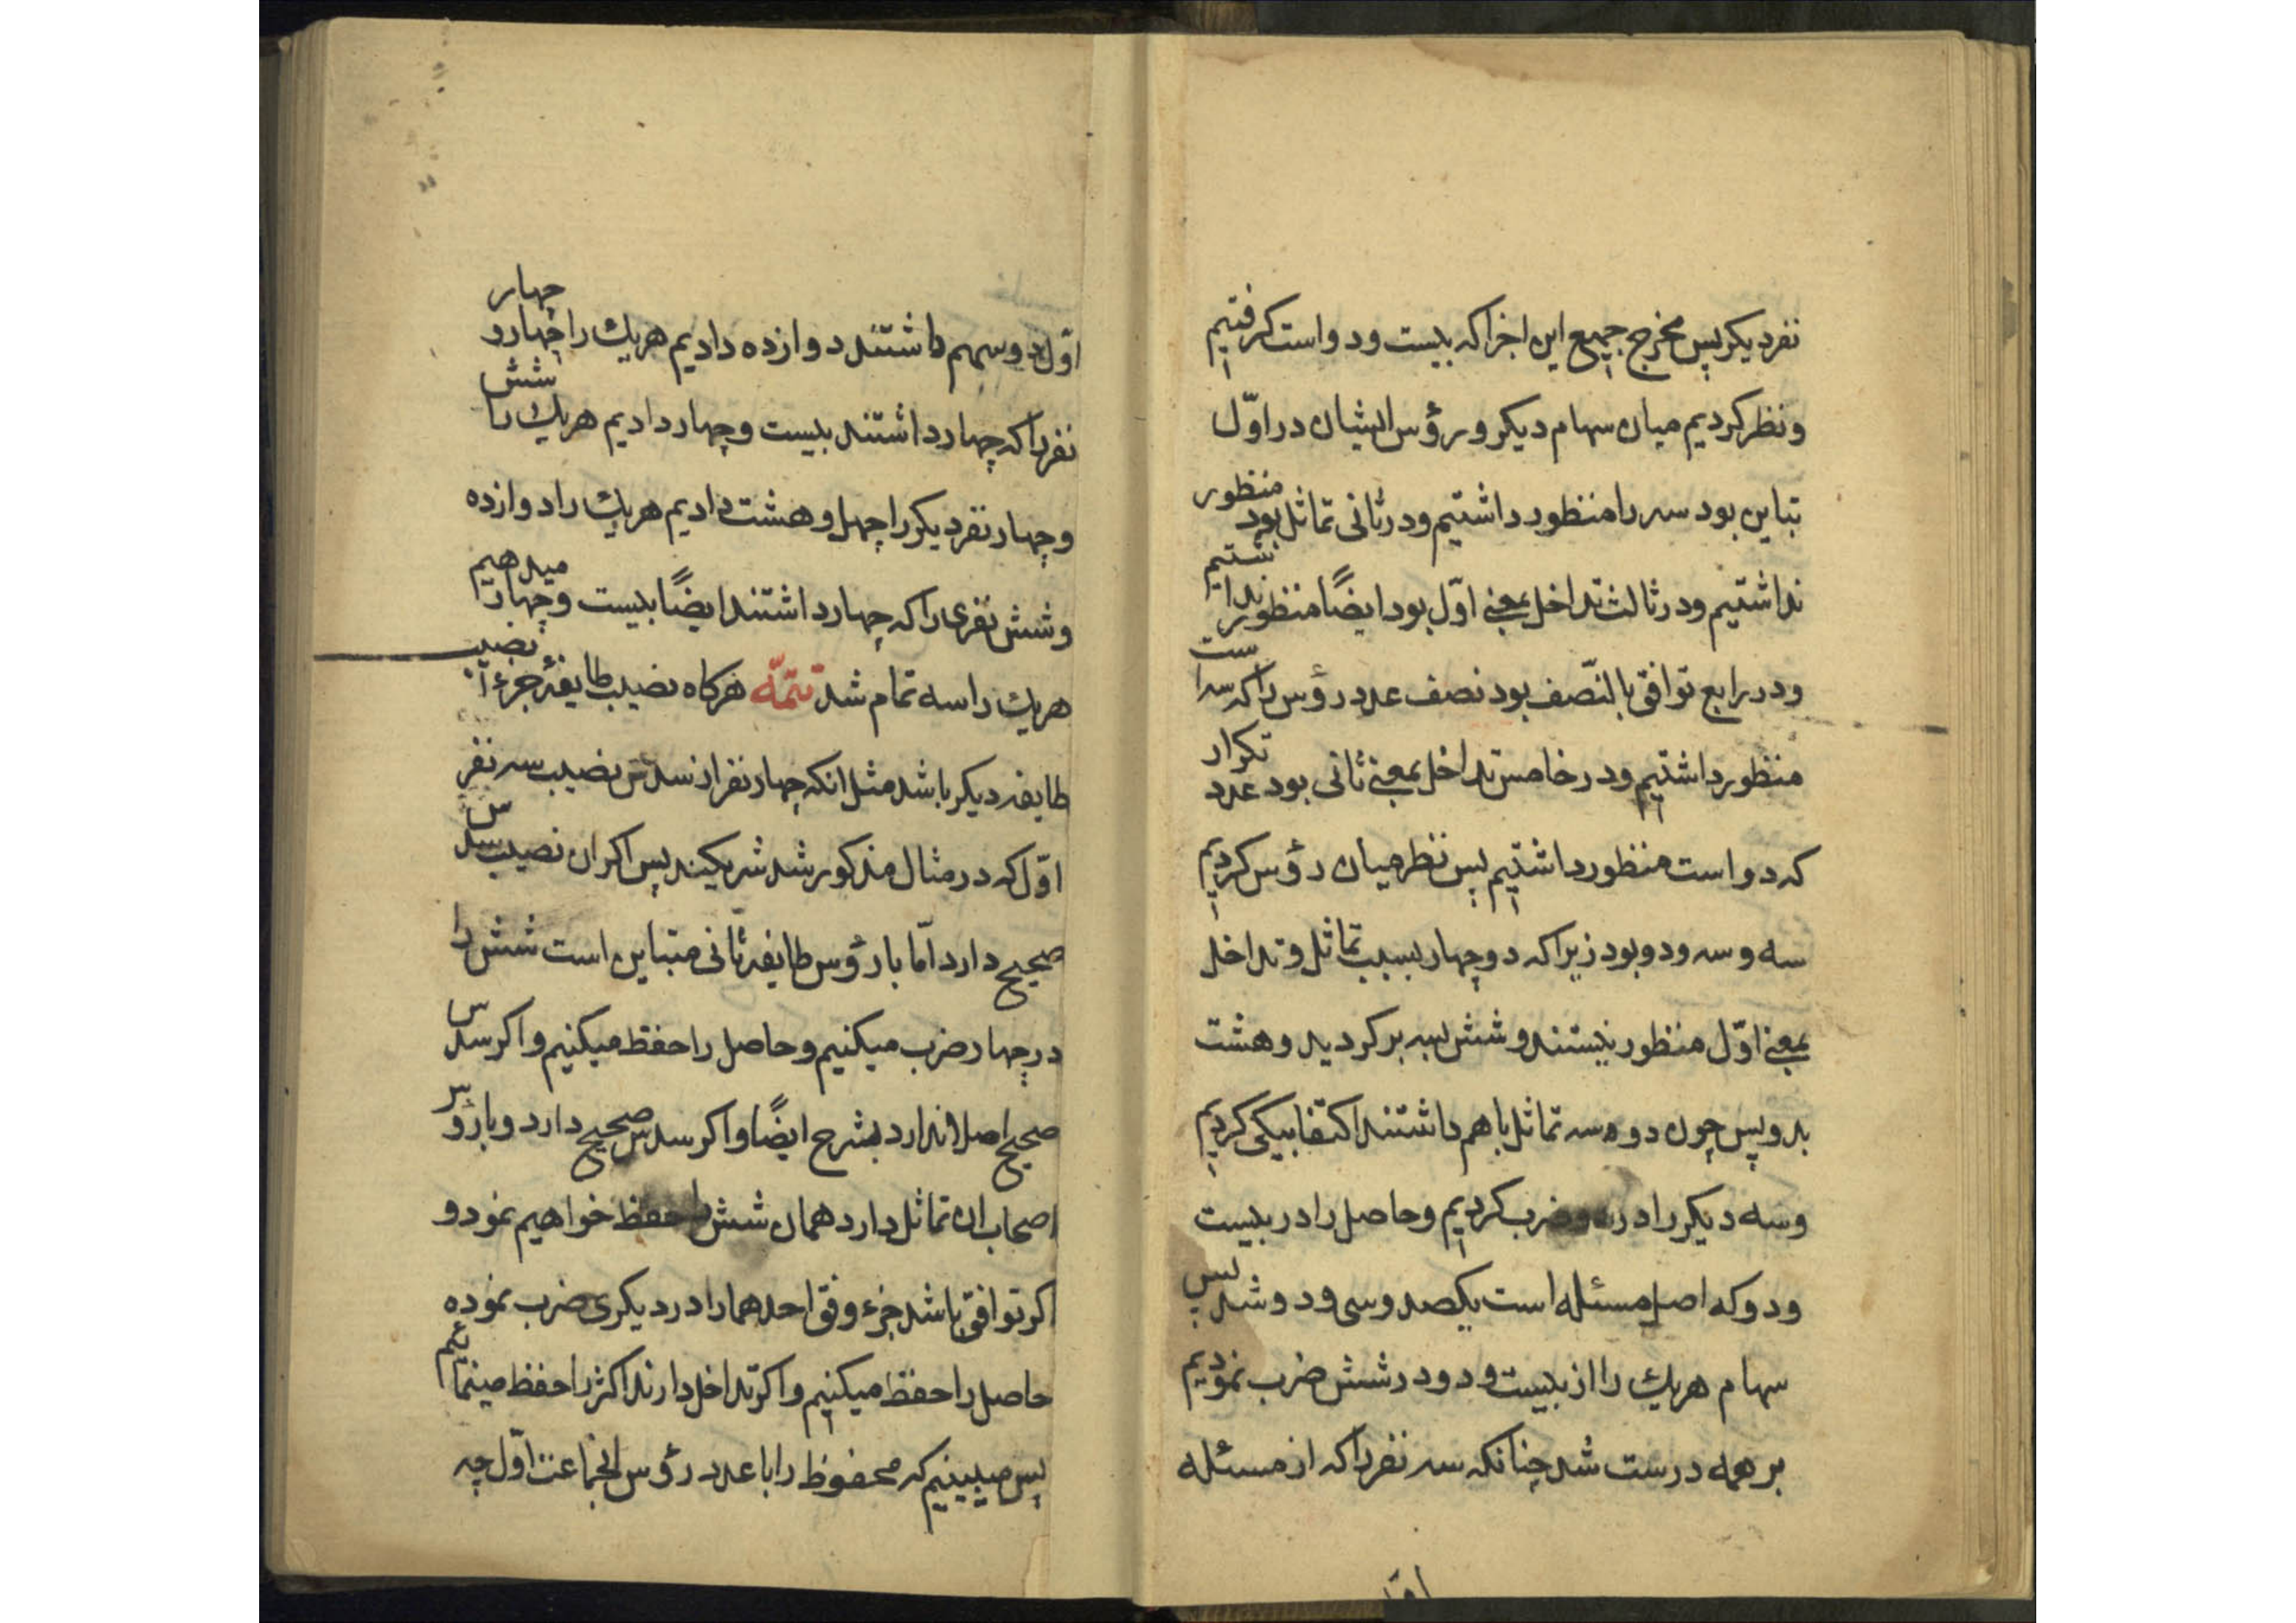 نفر دیکر پس مخرج جمیع این اجزا که بیست و دو است کرفتیم
و نظر کردیم میان سهام دیکر و رؤس ایشان در اوّل
تباین بود سه را منظور داشتیم و در ثانی تماثل بود منظور
نداشتیم و در ثالث تداخل بمعنی اوّل بود ایضًا منظور نداشتیم
و در رابع توافق بالنّصف بود نصف عدد رؤس را که سه است
منظور داشتیم و در خامس تداخل بمعنی ثانی بود عدد تکرار
که دو است منظور داشتیم پس نظر میان رؤس کردیم
سه و سه و دو بود زیرا که دو چهار بسبب تماثل و تداخل
بمعنی اوّل منظور نیستند و شش بسه بر کردید و هشت
بدو پس چون دو سه تماثل با هم داشتند اکتفا بیکی کردیم
و سه دیکر را در دو ضرب کردیم و حاصل را در بیست
و دو که اصل مسئله است یکصد و سی و دو شد پس
سهام هریك را از بیست و دو در شش ضرب نمودیم
بر همه درست شد چنانکه سه نفر را که از مسئله
اوّ
اوّل دو سهم داشتند دوازده دادیم هریك را چهار و چهار
نفر را که چهار داشتند بیست و چهار دادیم هریك را شش
و چهار نفر دیکر را چهل و هشت دادیم هریك را دوازده
و شش نفری را که چهار داشتند ایضًا بیست و چهار میدهیم
هریك را سه تمام شد تتمّه هرکاه نصیب طایفۀ جزء از نصیب
طایفه دیکر باشد مثل انکه چهار نفر از سدس نصیب سه نفر
اوّل که در مثال مذکور شد شریکند پس اکر ان نصیب سدس
صحیح دارد امّا با رؤس طایفه ثانی متباین است شش را
در چهار ضرب میکنیم و حاصل را حفظ میکنیم و اکر سدس
صحیح اصلا ندارد بشرح ایضًا و اکر سدس صحیح دارد و با رؤس
اصحاب ان تماثل دارد همان شش را حفظ خواهیم نمود و
اکر توافق باشد جزء وفق احدهما را در دیکری ضرب نموده
حاصل را حفظ میکنیم و اکر تداخل دارند اکثر را حفظ مینمائیم
پس میبینیم که محفوظ را با عدد رؤس انجماعت اوّل چه